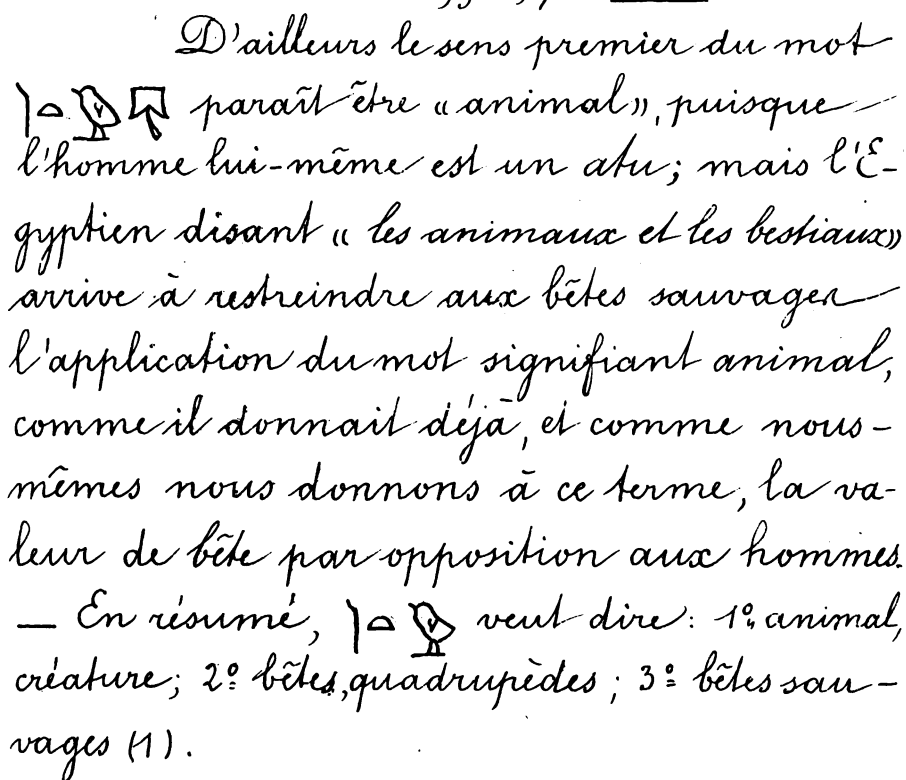 D'ailleurs le sens premier du mot
𓌙𓏏𓅱𓄛 paraît être « animal », puisque
l'homme lui-même est un atu ; mais l'É-
gyptien disant « les animaux et les bestiaux »
arrive à restreindre aux bêtes sauvages
l'application du mot signifiant animal,
comme il donnait déjà, et comme nous-
mêmes nous donnons à ce terme, la va-
leur de bête par opposition aux hommes.
— En résumé, 𓌙𓏏𓅱 veut dire : 1º, animal,
créature ; 2º bêtes, quadrupèdes ; 3º bêtes sau-
vages (1).